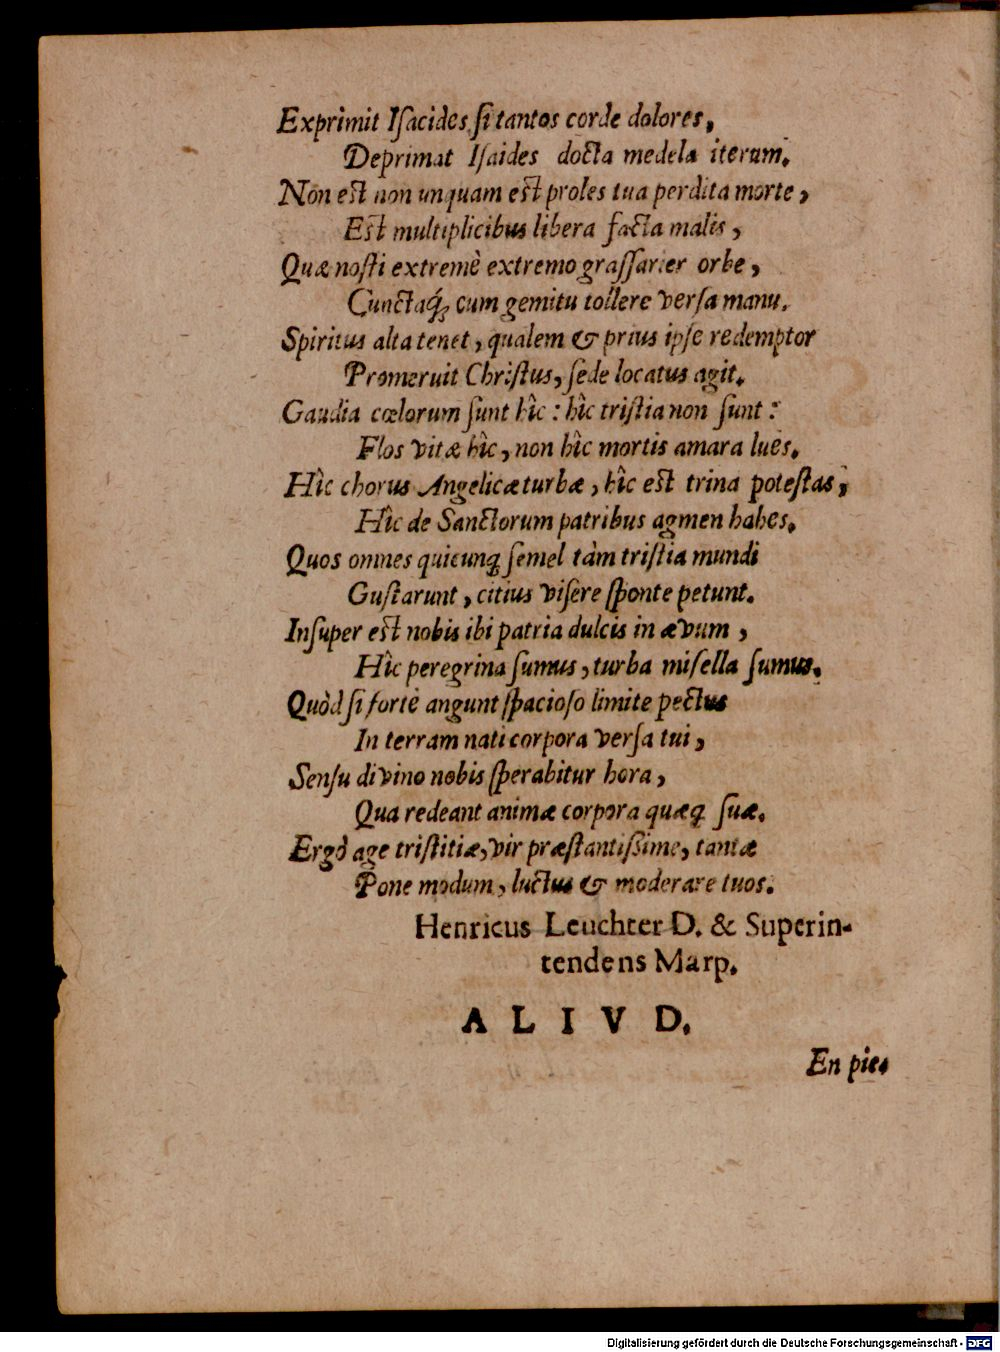 Exprimit Iſacides, ſi tantos corde dolores,
Deprimat Iſaides docta medela iterum.
Non eſt non unquam eſt proles tua perdita morte,
Eſt multiplicibus libera facta malis,
Quæ noſti extremè extremo graſſarier orbe,
Cunctaq́; cum gemitu tollere verſa manu.
Spiritus alta tenet, qualem & prius ipſe redemptor
Promeruit Chriſtus, ſede locatus agit.
Gaudia cœlorum ſunt hîc: hîc triſtia non ſunt:
Flos vitæ hîc, non hîc mortis amara lues.
Hîc chorus Angelicæ turbæ, hîc eſt trina poteſtas,
Hîc de Sanctorum patribus agmen habes.
Quos omnes quicunq; ſemel tàm triſtia mundi
Guſtarunt, citius viſere ſponte petunt.
Inſuper eſt nobis ibi patria dulcis in ævum,
Hîc peregrina ſumus, turba miſella ſumus.
Quòd ſi fortè angunt ſpacioſo limite pectus
In terram nati corpora verſa tui,
Senſu divino nobis ſperabitur hora,
Qua redeant animæ corpora quæq; ſuæ.
Ergò age triſtitiæ, vir præſtantiſſime, tantæ
Pone modum, luctus & moderare tuos.
Henricus Leuchter D. & Superin-
tendens Marp.
ALIVD.
En pie.
Digitalisierung gefördert durch die Deutsche Forschungsgemeinschaft - DFG